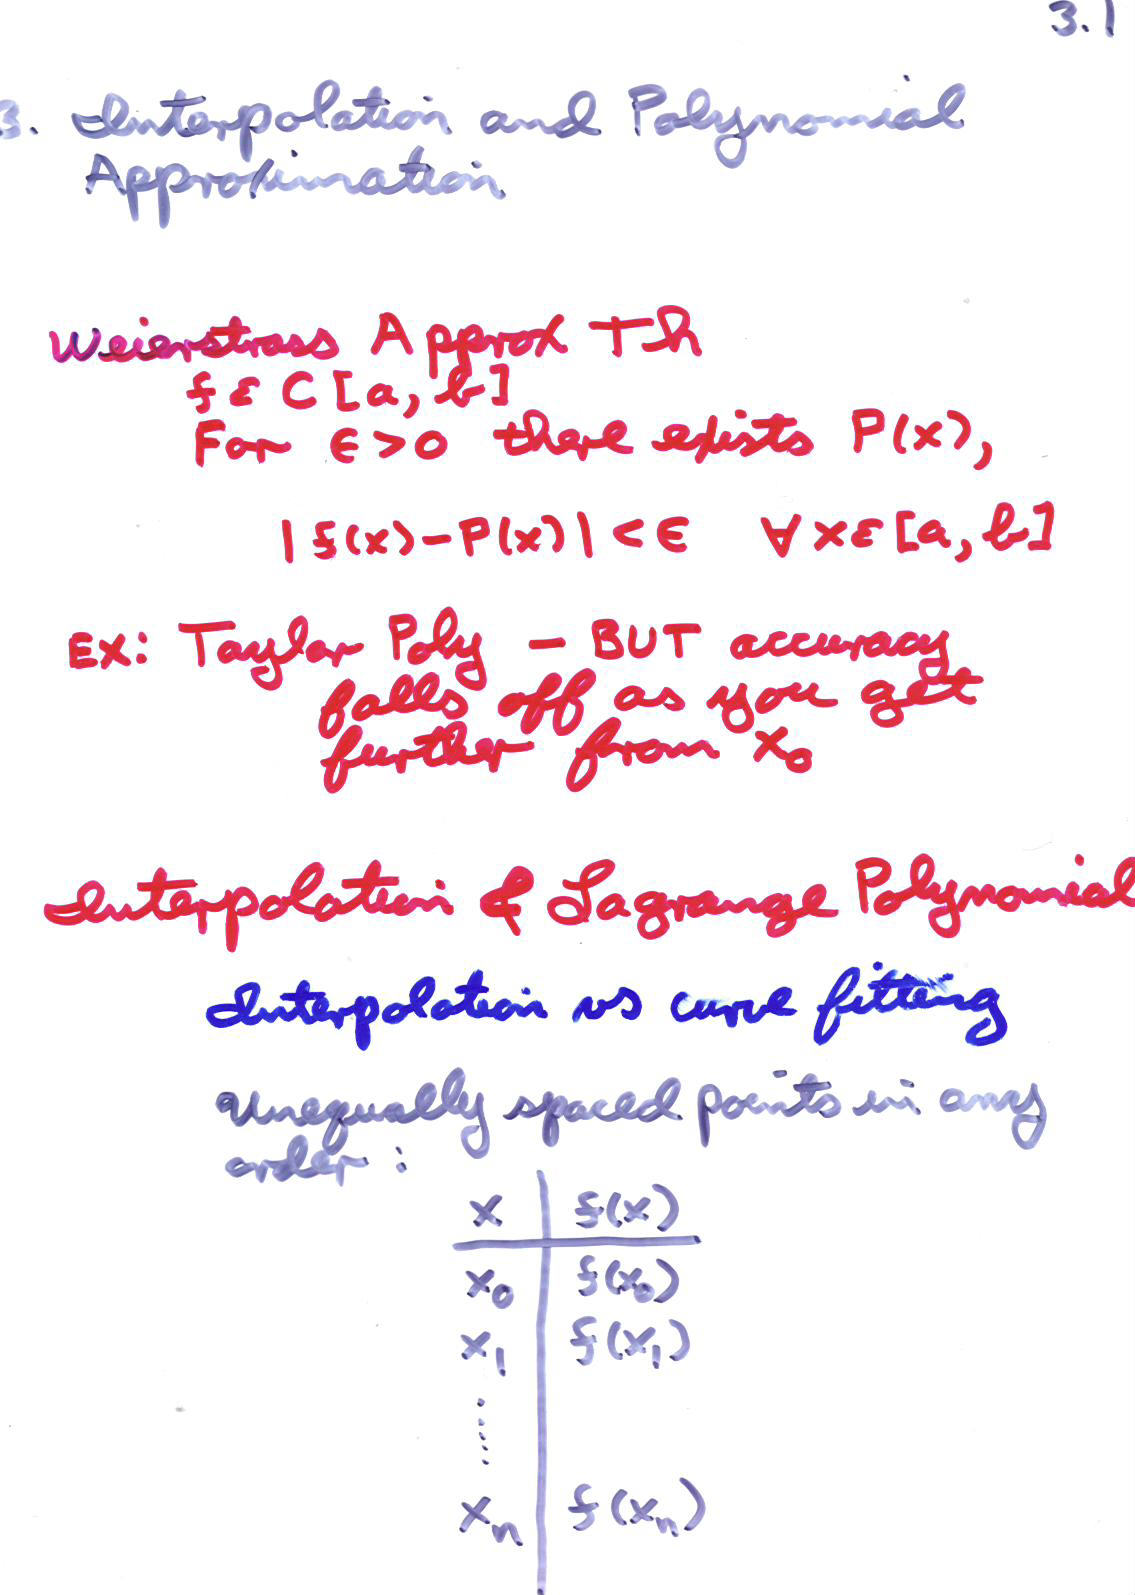 3.1
3. Interpolation and Polynomial
Approximation
Weierstrass Approx Th
f ε C [a, b]
For ϵ > 0 there exists P(x),
|f(x) - P(x)| < ϵ ∀ x ε [a, b]
EX: Taylor Poly - BUT accuracy
falls off as you get
further from x₀
Interpolation & Lagrange Polynomial
Interpolation vs curve fitting
Unequally spaced points in any
order :
x f(x)
x₀ f(x₀)
x₁ f(x₁)
......
xₙ f(xₙ)